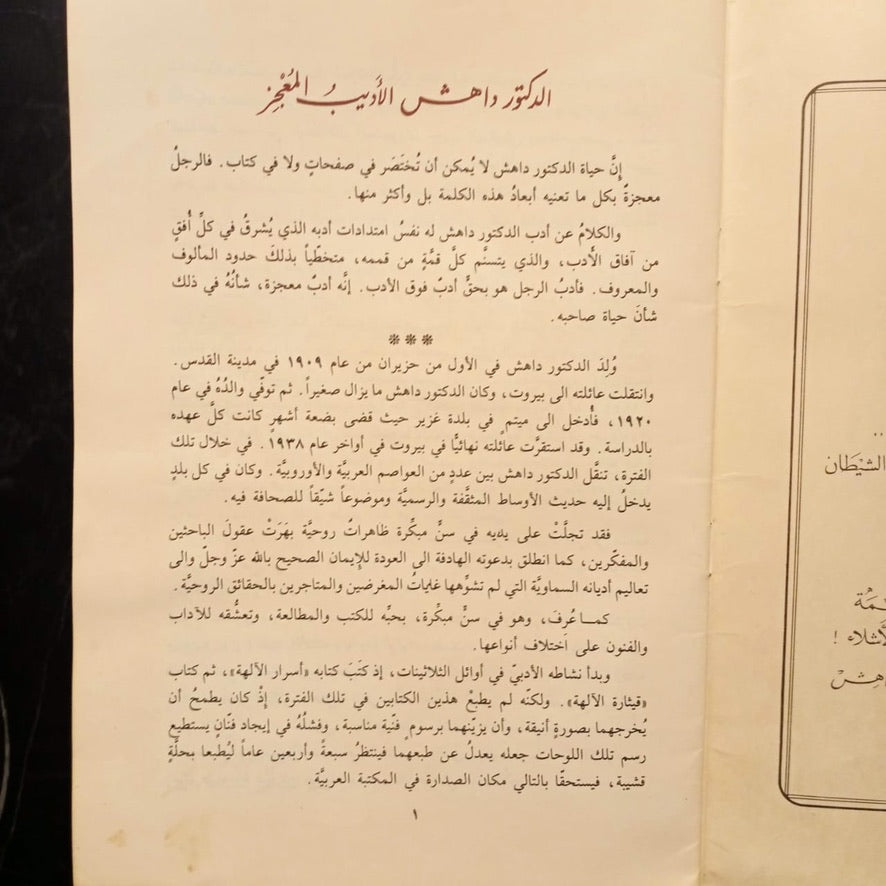 الدكتور داهش الأديبُ المُعْجِز
إنَّ حياة الدكتور داهش لا يُمكن أن تُختَصَر في صفحاتٍ ولا في كتاب. فالرجلُ
معجزةٌ بكل ما تعنيه أبعادُ هذه الكلمة بل وأكثر منها.
والكلامُ عن أدب الدكتور داهش له نفسُ امتدادات أدبه الذي يُشرقُ في كلِّ أُفقٍ
من آفاق الأدب، والذي يتسنَّم كلَّ قمَّةٍ من قممه، متخطّياً بذلكَ حدود المألوف
والمعروف. فأدبُ الرجل هو بحقٍّ أدبٌ فوق الأدب. إنَّه أدبٌ معجزة، شأنُهُ في ذلك
شأنَ حياة صاحبه.
***
وُلِدَ الدكتور داهش في الأول من حزيران من عام ١٩٠٩ في مدينة القدس.
وانتقلت عائلته الى بيروت، وكان الدكتور داهش ما يزال صغيراً. ثم توفّي والدُهُ في عام
١٩٢٠، فأُدخل الى ميتمٍ في بلدة غزير حيث قضى بضعة أشهرٍ كانت كلَّ عهده
بالدراسة. وقد استقرَّت عائلته نهائيًّا في بيروت في أواخر عام ١٩٣٨. في خلال تلك
الفترة، تنقَّل الدكتور داهش بين عددٍ من العواصم العربيَّة والأوروبيَّة. وكان في كل بلدٍ
يدخلُ إليه حديث الأوساط المثقَّفة والرسميَّة وموضوعاً شيّقاً للصحافة فيه.
فقد تجلَّتْ على يديه في سنٍّ مبكِّرة ظاهراتٌ روحيَّة بهَرَتْ عقولَ الباحثين
والمفكّرين، كما انطلق بدعوته الهادفة الى العودة للإيمان الصحيح بالله عزّ وجلّ والى
تعاليم أديانه السماويَّة التي لم تشوِّهها غاياتُ المغرضين والمتاجرين بالحقائق الروحيَّة.
كما عُرِفَ، وهو في سنٍّ مبكِّرة، بحبِّه للكتب والمطالعة، وتعشُّقه للآداب
والفنون على اختلاف أنواعها.
وبدأ نشاطه الأدبيّ في أوائل الثلاثينات، إذ كتَبَ كتابه «أسرار الآلهة»، ثم كتاب
«قيثارة الآلهة». ولكنَّه لم يطبعْ هذين الكتابين في تلك الفترة، إذْ كان يطمحُ أن
يُخرجهما بصورةٍ أنيقة، وأن يزيّنهما برسومٍ فنّية مناسبة، وفشلُهُ في إيجاد فنّانٍ يستطيع
رسم تلك اللوحات جعله يعدلُ عن طبعهما فينتظرُ سبعةً وأربعين عاماً ليُطبعا بحلَّةٍ
قشيبة، فيستحقّا بالتالي مكان الصدارة في المكتبة العربيَّة.
١
الشيْطان